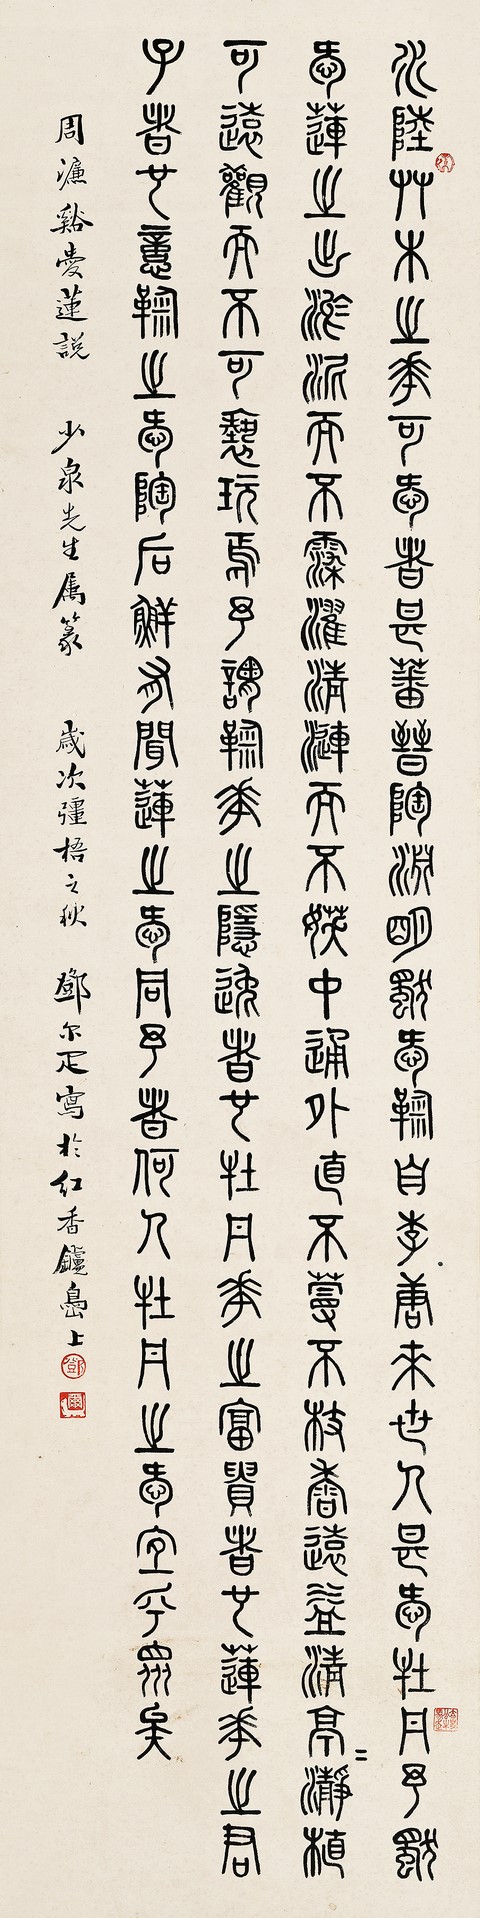 水陸艸木之華可愛者甚蕃晉陶淵明獨愛鞠自李唐來世人甚愛牡丹予獨
愛蓮之出淤泥而不染濯清漣而不妖中通外直不蔓不枝香遠益清亭=瀞植
可遠觀而不可褻玩焉予謂鞠華之隱逸者也牡丹華之富貴者也蓮華之君
子者也意鞠之愛陶后鮮有聞蓮之愛同予者何人牡丹之愛宜乎眾矣
周濂谿愛蓮說 少泉先生属篆 歲次彊梧之秋 鄧尔疋寫於紅香鑪島上
鄧